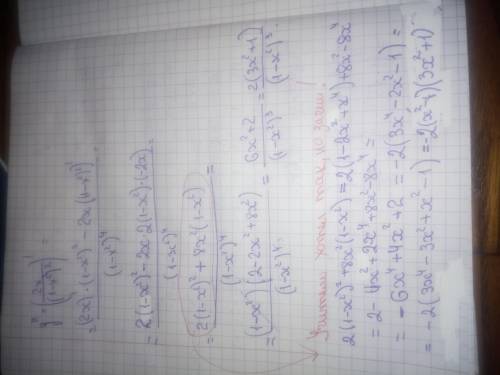 y'' = (2x/(1-x²)²)' =
= ((2x)'·(1-x²)² - 2x((1-x²)²)')/(1-x²)⁴ =
= (2(1-x²)² - 2x·2(1-x²)·(-2x))/(1-x²)⁴ =
= (2(1-x²)² + 8x²(1-x²))/(1-x²)⁴ =
= ((1-x²)(2-2x²+8x²))/(1-x²)⁴ = (6x²+2)/(1-x²)³ = 2(3x²+1)/(1-x²)³.
хотел так, но зачем
2(1-x²)²+8x²(1-x²) = 2(1-2x²+x⁴)+8x²-8x⁴
= 2-4x²+2x⁴+8x²-8x⁴ =
= -6x⁴+4x²+2 = -2(3x⁴-2x²-1) =
= -2(3x⁴-3x²+x²-1) = -2(x²-1)(3x²+1)